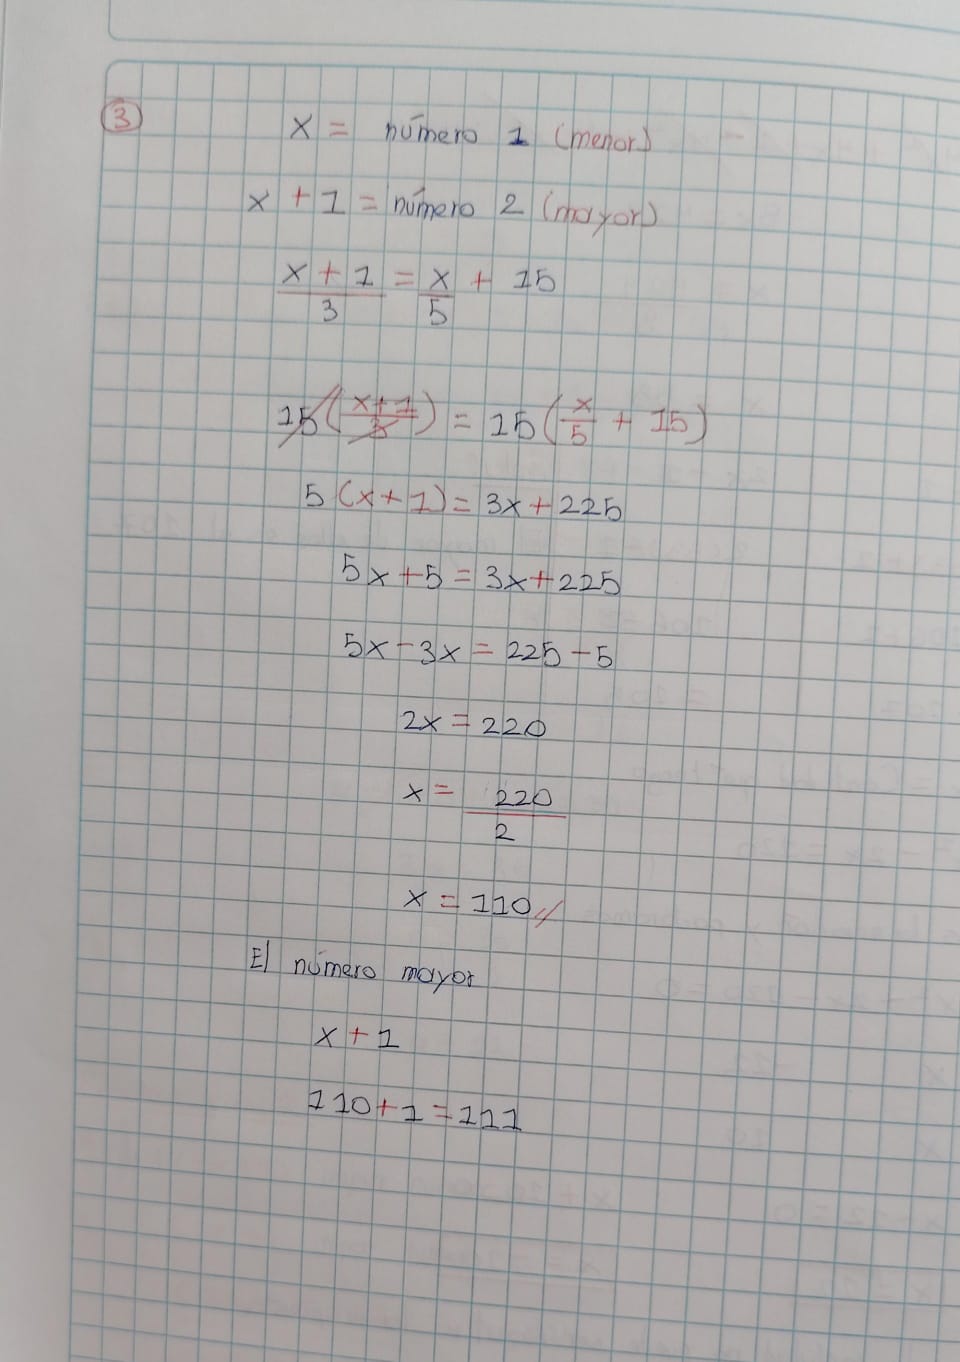 3
x = número 1 (menor)
x + 1 = número 2 (mayor)
(x + 1)/3 = x/5 + 15
15((x+1)/3) = 15(x/5 + 15)
5(x+1) = 3x+225
5x+5 = 3x+225
5x-3x = 225-5
2x = 220
x = 220/2
x = 110//
El número mayor
x + 1
110+1=111